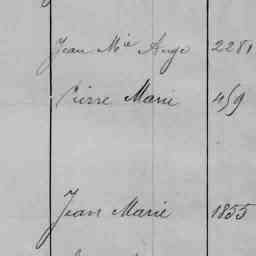 Jean Mie Ange 2281
Pierre Marie 459
Jean Marie 1855